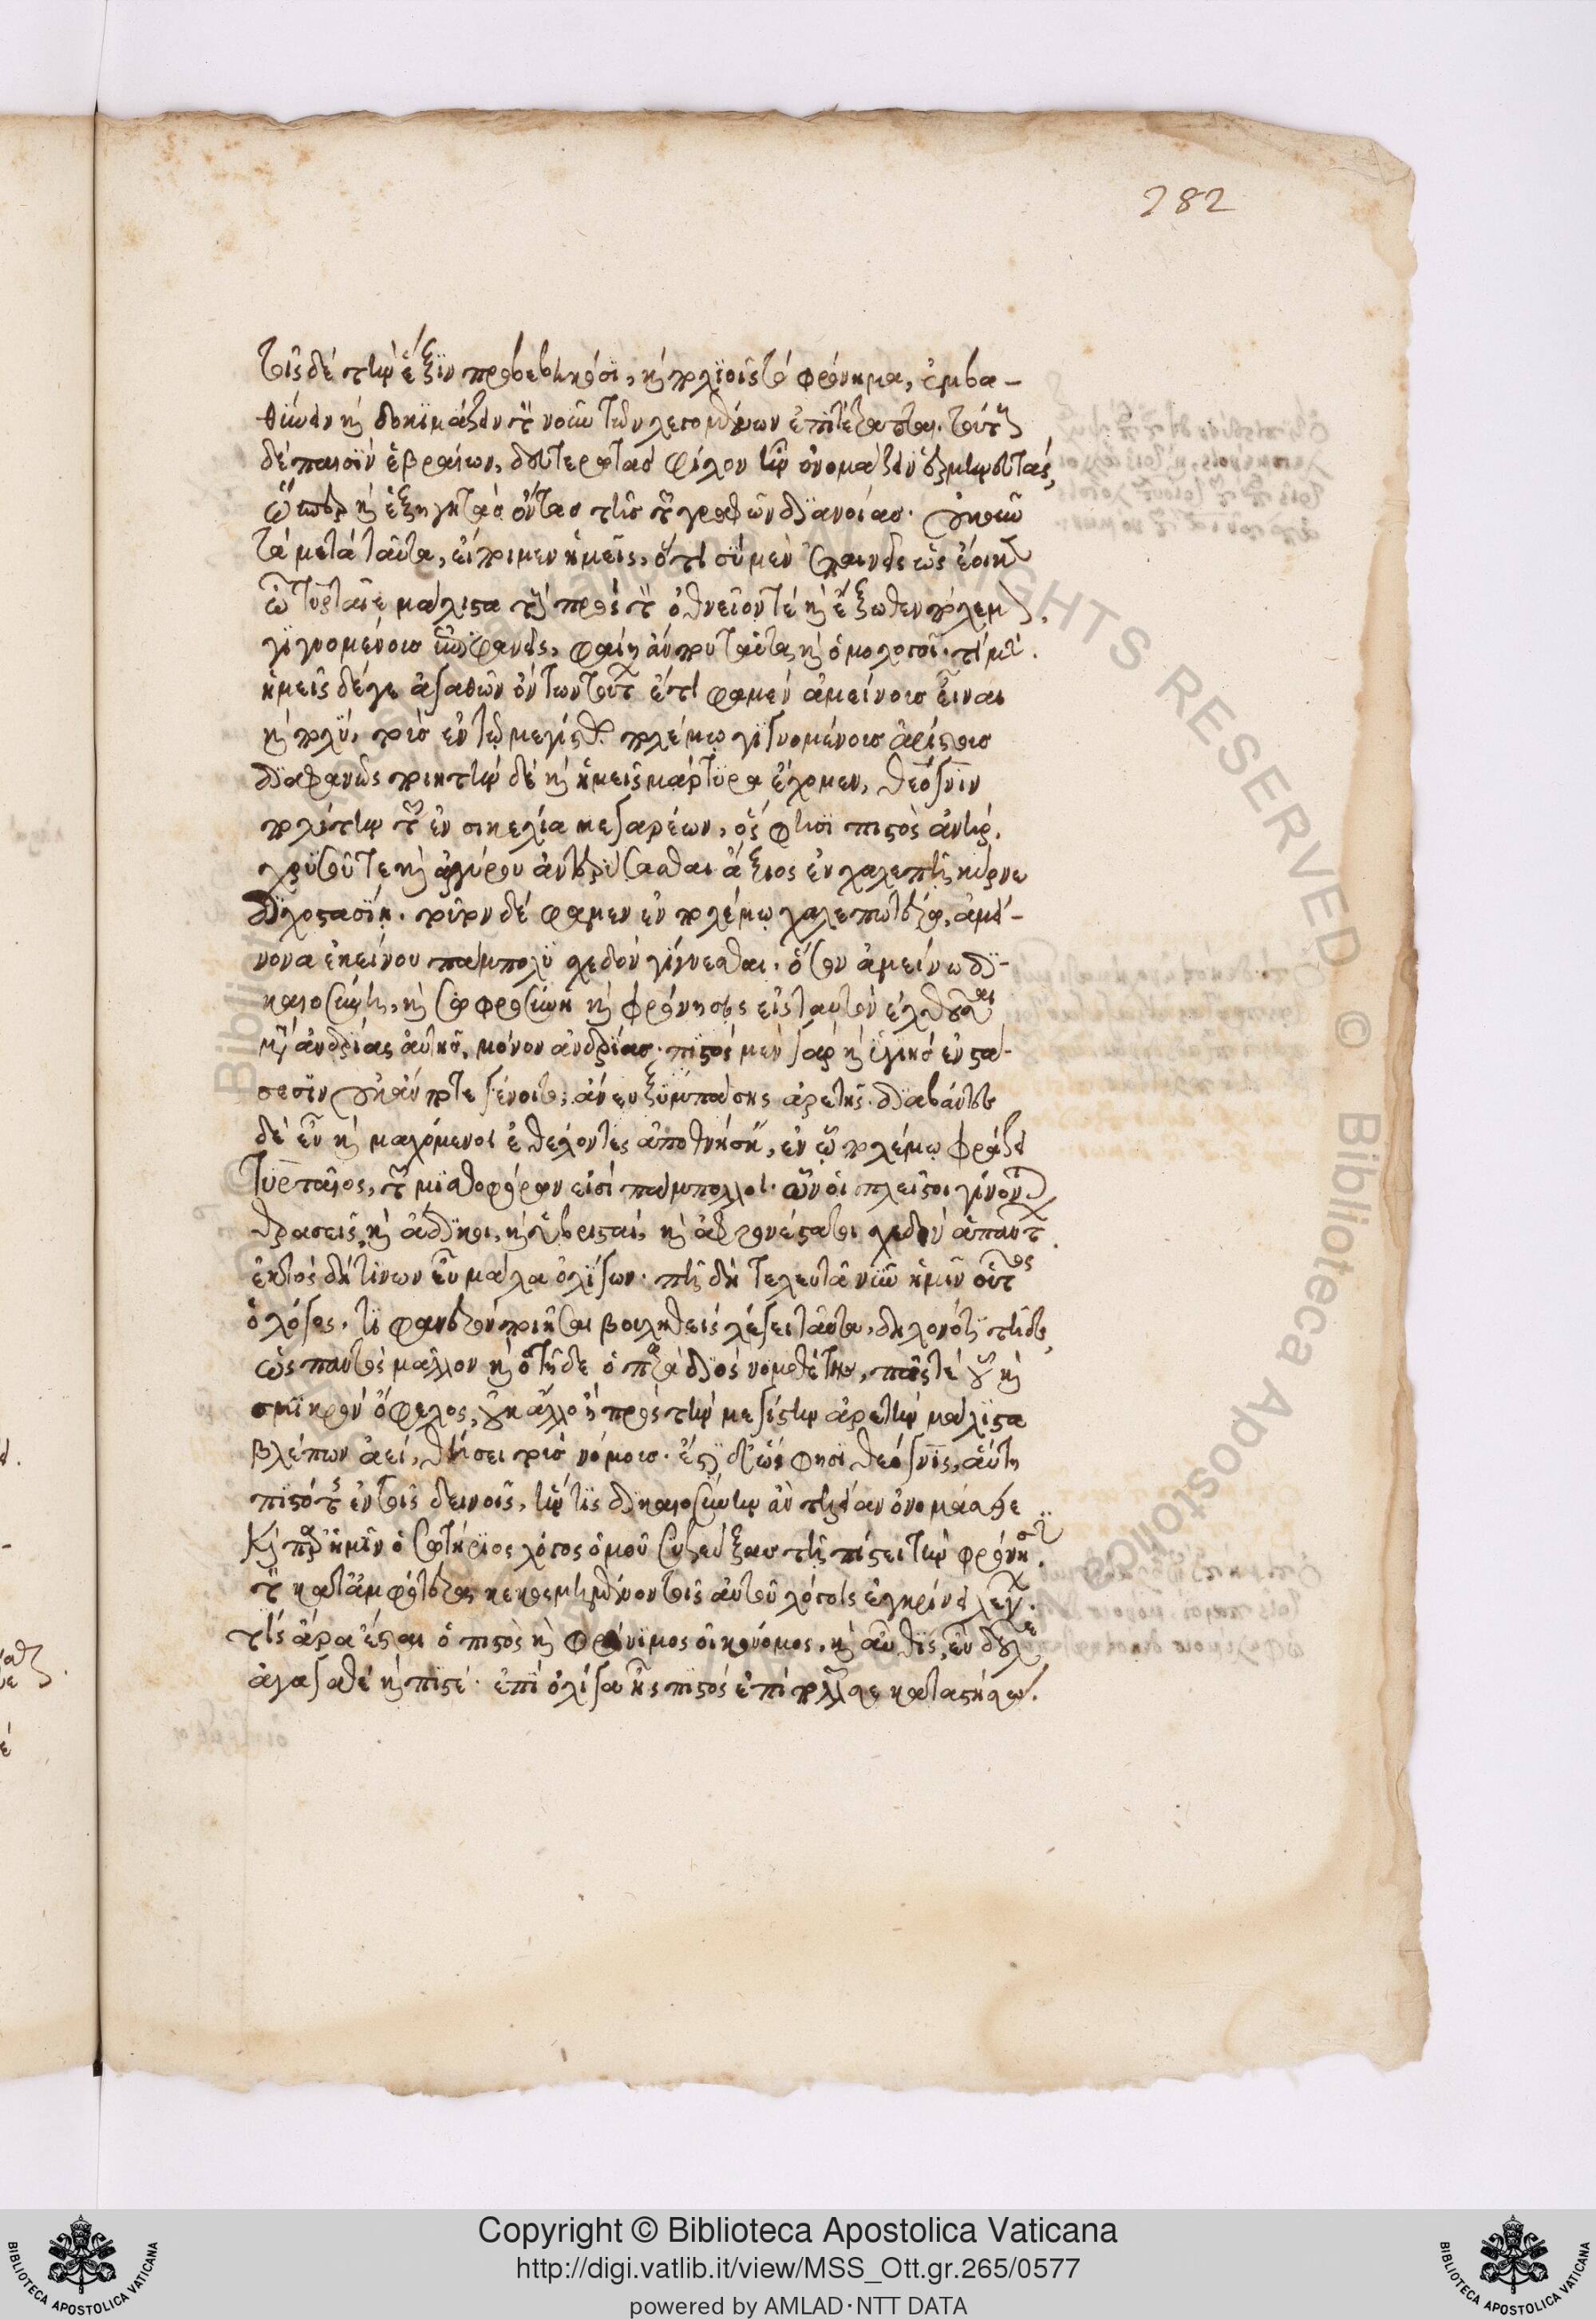 282
τοῖς δὲ τὴν ἕξιν προβεβηκόσι, καὶ πολιοῖς τὸ φρόνημα, ἐμβα-
θύνειν καὶ δοκιμάζειν τὸν νοῦν τῶν λεγομένων ἐπιτέτακται. τούτους
δὲ παισὶν ἑβραίων, δευτερωτὰς φίλον ἦν ὀνομάζειν
ὥσπερ καὶ ἐξηγητὰς ὄντας τῆς τῶν γραφῶν διανοίας. οὐκοῦν
τὰ μετὰ ταῦτα, εἴποιμεν ἡμεῖς, ὅτι σὺ μὲν ἐπαινεῖς ὡς ἔοικας
ὦ Τυρταῖε μάλιστα τοὺς πρὸς τὸν ὀθνεῖον τὲ καὶ ἔξωθεν πόλεμον
γιγνομένους ἐπιφανεῖς, φαίη ἄν που ταῦτα καὶ ὁμολογοῖ. τί μήν.
ἡμεῖς δέ γε ἀγαθῶν ὄντων τούτων ἔτι φαμὲν ἀμείνους εἶναι
καὶ πολὺ, τοὺς ἐν τῷ μεγίστῳ πολέμῳ γιγνομένους ἀρίστους
διαφανῶς ποιητὴν δὲ καὶ ἡμεῖς μάρτυρα ἔχομεν, Θέογνιν
πολίτην τῶν ἐν σικελία μεγαρέων, ὅς φησι πιστὸς ἀνὴρ.
χρυσοῦ τε καὶ ἀργύρου ἀντερύσασθαι ἄξιος ἐν χαλεπῇ κύρνε
διχοστασίῃ. τοῦτον δέ φαμεν ἐν πολέμῳ χαλεπωτέρῳ, ἀμεί-
νονα ἐκείνου πάμπολυ σχεδὸν γίγνεσθαι. ὅσον ἀμείνω δι-
καιοσύνη, καὶ σωφροσύνη καὶ φρόνησις εἰς ταυτὸν ἐλθοῦσαι
μετ' ἀνδρίας αὐτῆς, μόνον ἀνδρίας. πιστὸς μὲν γὰρ καὶ ὑγιὴς ἐν στά-
σεσιν οὐκ ἄν ποτε γένοιτο, ἄνευ ξυμπάσης ἀρετῆς. διαβάντες
δὲ εὖ καὶ μαχόμενοι ἐθέλοντες ἀποθνήσκειν, ἐν ᾧ πολέμῳ φράζει
Τυρταῖος, τῶν μισθοφόρων εἰσὶ πάμπολλοι. ὧν οἱ πλεῖστοι γίνονται
θρασεῖς, καὶ ἄδικοι, καὶ ὑβρισταί, καὶ ἀφρονέστατοι σχεδὸν ἁπάντων
ἐκτὸς δή τινων εὖ μάλα ὀλίγων. πῆ δὴ τελευτᾷ νῦν ἡμῖν οὗτος
ὁ λόγος, τί φανερὸν ποιῆσαι βουληθεὶς λέγει ταῦτα, δηλονότι τόδε,
ὡς παντὸς μᾶλλον καὶ ὁ τῇδε ὁ παρὰ διὸς νομοθέτης, πᾶς τέ οὗ καὶ
σμικρὸν ὄφελος, οὐκ ἄλλο ἢ πρὸς τὴν μεγίστην ἀρετὴν μάλιστα
βλέπων ἀεί, θήσει τοὺς νόμους. ἔστι δ' ὥς φησι Θέογνις, αὕτη
πιστότης ἐν τοῖς δεινοῖς, ἥν τις δικαιοσύνην ἂν τελείαν ὀνομάσειε
Καὶ παρ' ἡμῖν ὁ σωτήριος λόγος ὁμοῦ συζεύξας τῇ πίστει τὴν φρόνησιν.
τὸν κατ' ἀμφότερα κεκοσμημένον τοῖς αὐτοῦ λόγοις ἐγκρίνει λέγων.
τίς ἄρα ἔσται ὁ πιστὸς καὶ φρόνιμος οἰκονόμος, καὶ αὖθις, εὖ δοῦλε
ἀγαθὲ καὶ πιστέ. ἐπὶ ὀλίγα ἦς πιστός ἐπὶ πολλῶν σε καταστήσω.
Copyright © Biblioteca Apostolica Vaticana
http://digi.vatlib.it/view/MSS_Ott.gr.265/0577
powered by AMLAD·NTT DATA
BIBLIOTECA APOSTOLICA VATICANA
BIBLIOTECA APOSTOLICA VATICANA